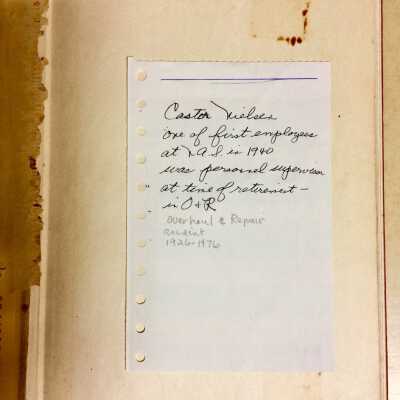 Castor Nielsen
one of first employees
at N.A.S. in 1940
was personnel supervisor
at time of retirement -
in O & R
overhaul & Repair
1926-1976